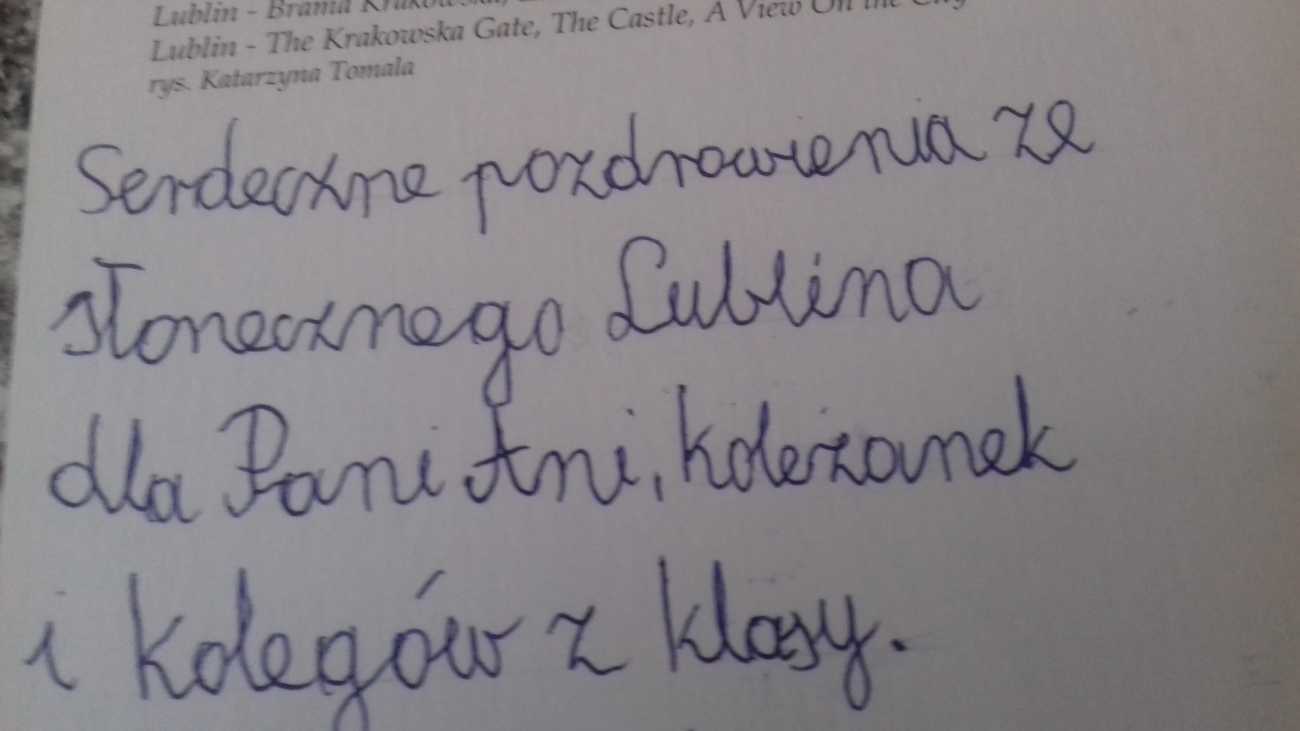 Lublin - Brama Krakowska,
Lublin - The Krakowska Gate, The Castle, A View On the City
rys. Katarzyna Tomala
Serdeczne pozdrowienia ze
słonecznego Lublina
dla Pani Ani, koleżanek
i kolegów z klasy.